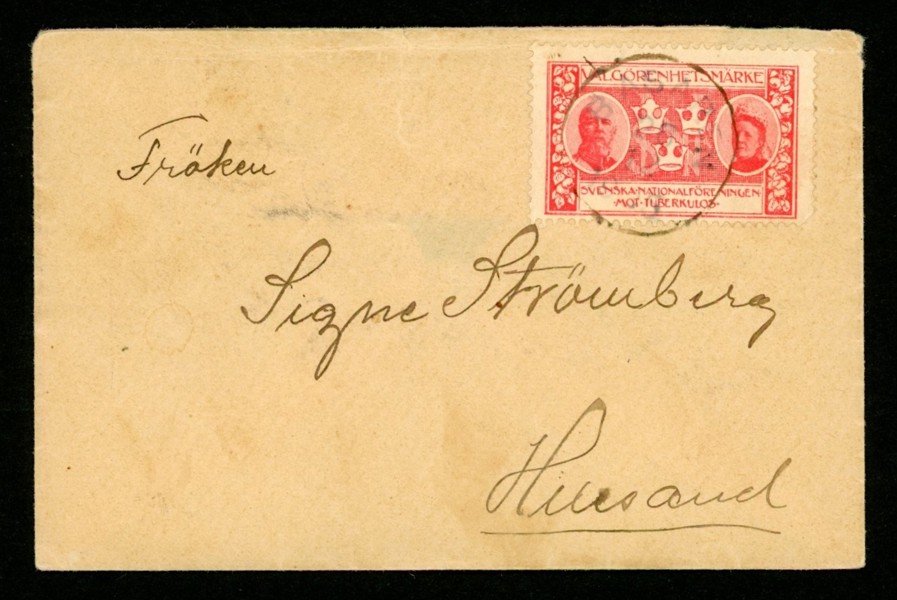 VÄLGÖRENHETSMÄRKE
SVENSKA·NATIONALFÖRENINGEN
·MOT·TUBERKULOS·
Fröken
Signe Strömberg